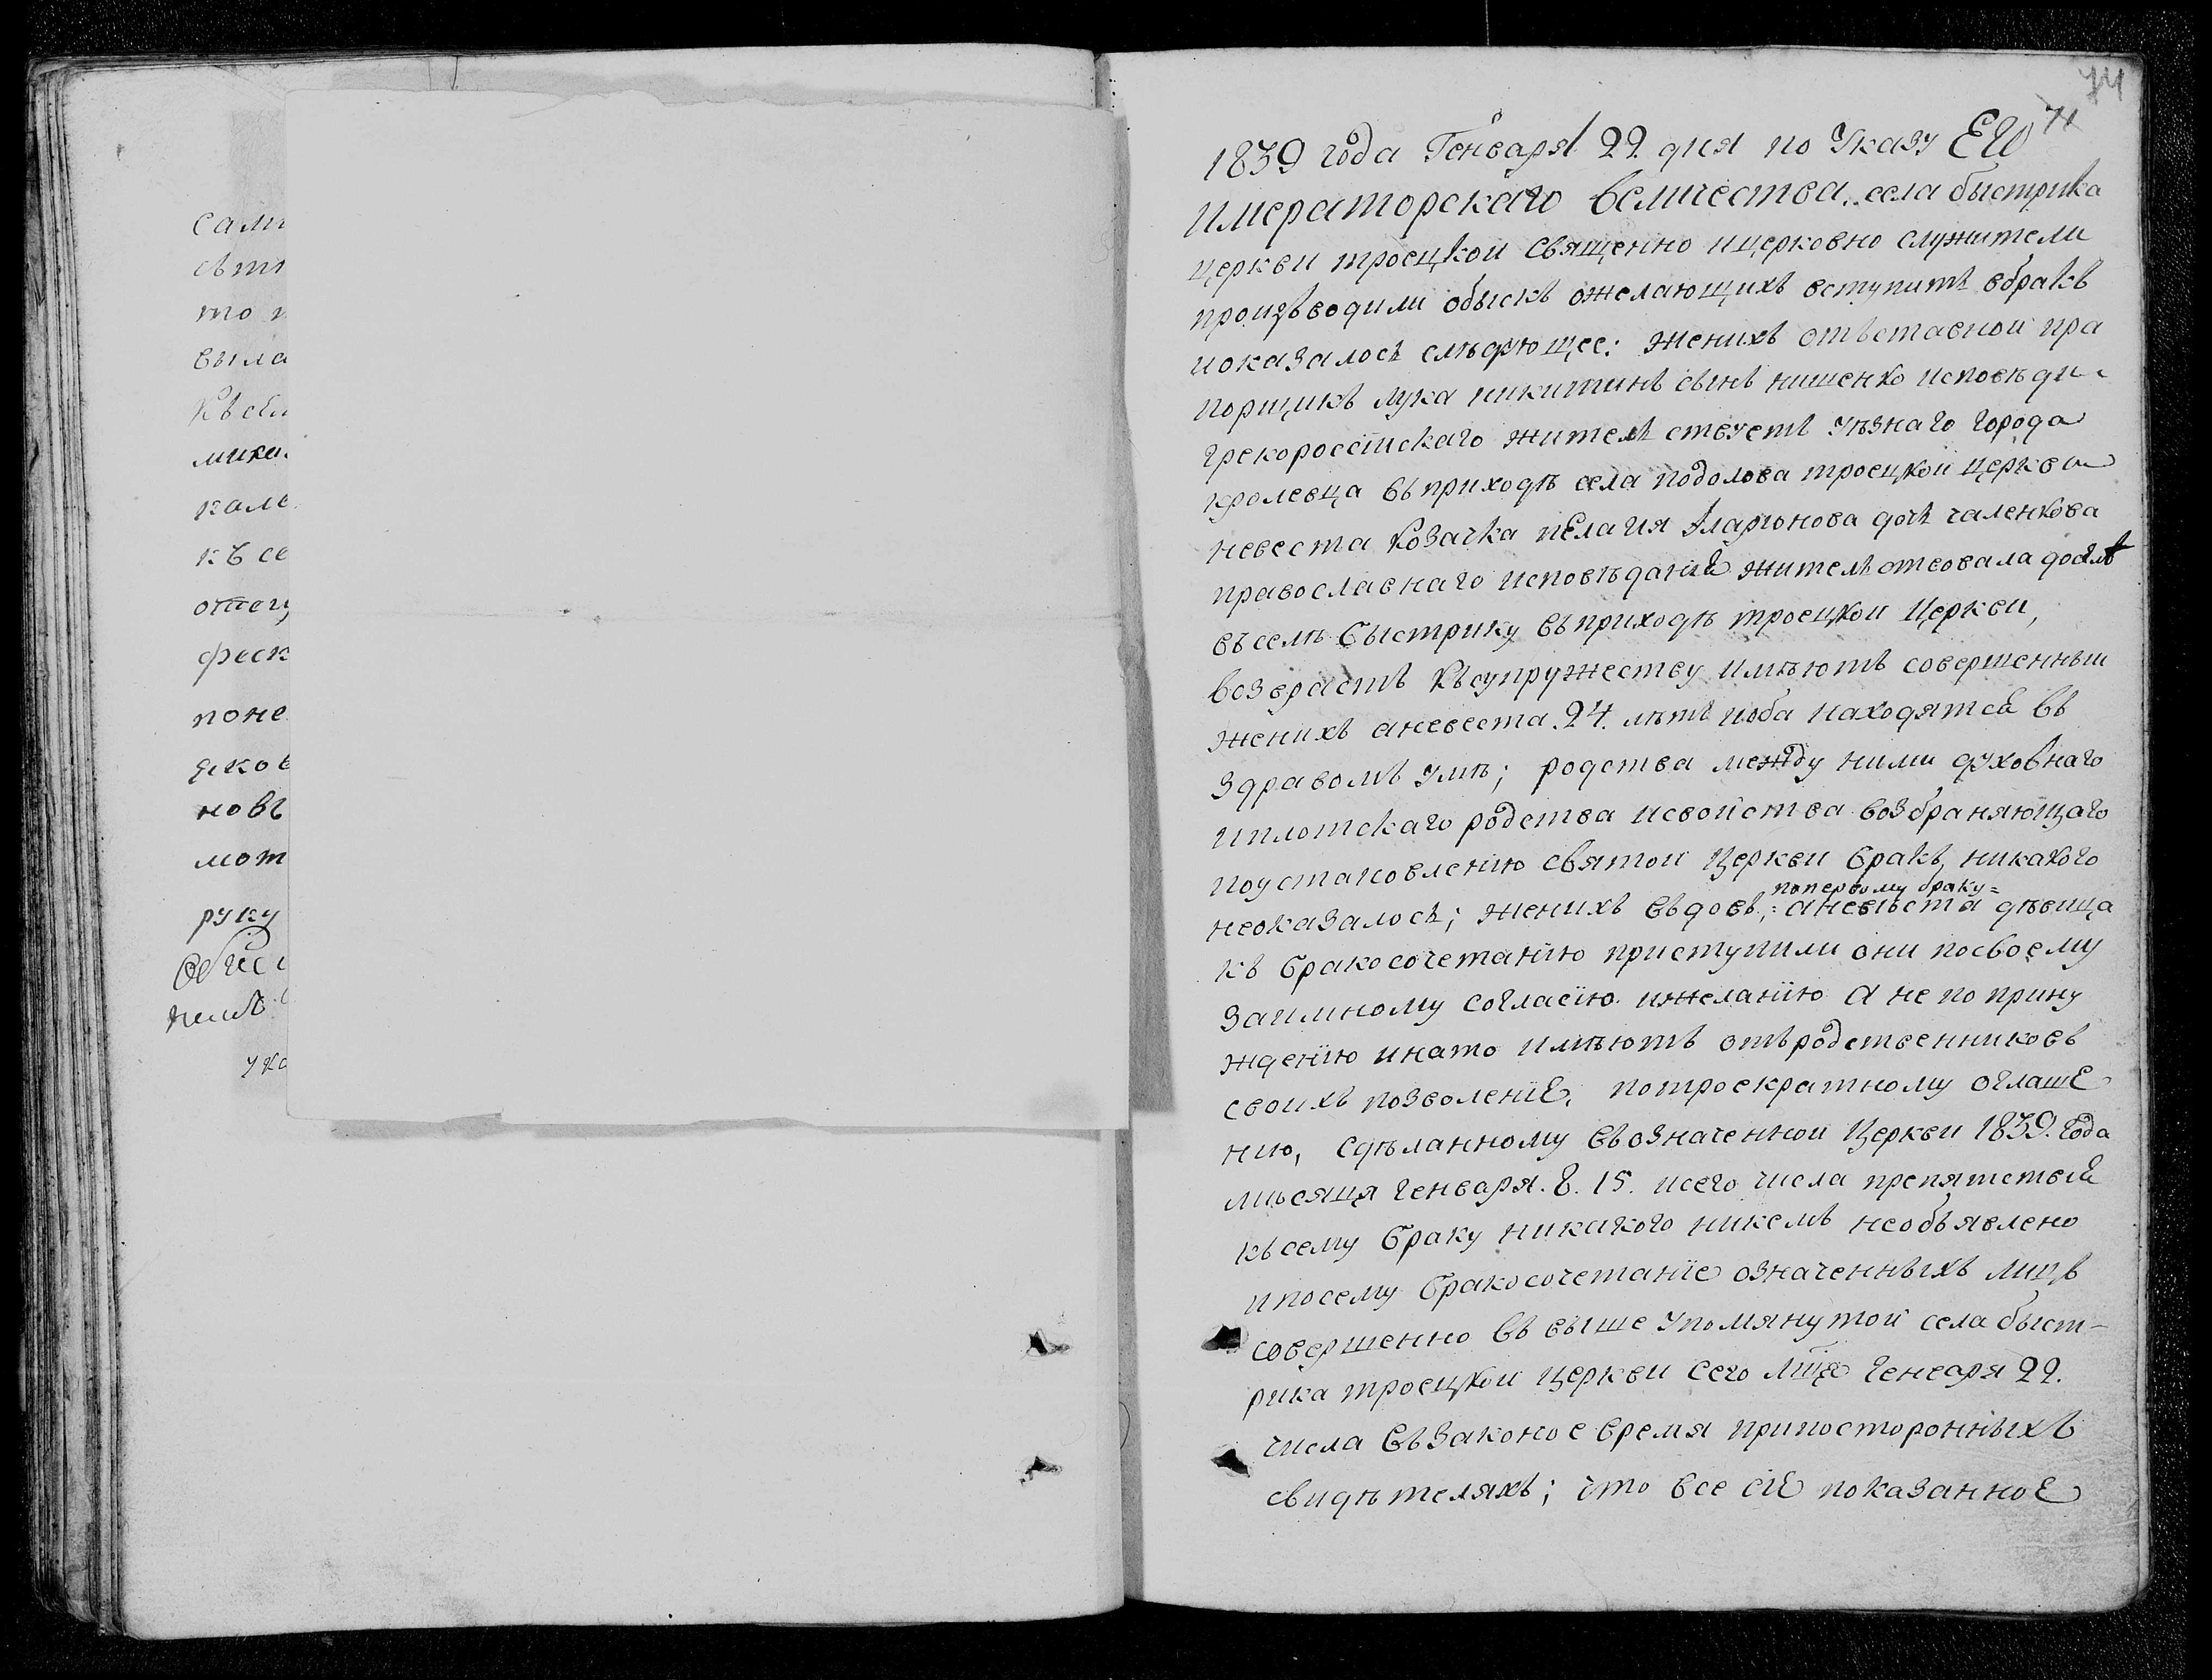 сами
свтт
то п
была
Ксвби
михи
кале
къ се
отец
феск
поне
яков
новг
мот
руку
пель
ука
74
71
1839 года Генваря 22 дня по Указу Его
имераторскаго величества, села быстрика
церкви троецкой священно ицерковно служители
произъводили обыскъ ожелающихъ вступить вбракъ
иоказалось слѣдующее: женихъ отъставной пра
порщикъ лука никитинъ сынъ нишенко исповѣди
грекоросеійскаго жительствуетъ уѣзнаго города
кролевца въприходѣ села подолова троецкой церкви
невеста козачка пелагия Иларионова дочь чаленкова
православнаго исповѣданія жительствовала доселѣ
въселѣ быстрику въприходѣ троецкой церкви,
возврастъ къ супружеству имѣютъ совершенный
женихъ аневеста. 24. лѣтъ иоба находятся въ
здравомъ умѣ; родства между ними духовнаго
иплотскаго родства исвойства возбраняющаго
поустановленію святой церкви бракъ, никакого
неоказалось; женихъ вдовъ, = попервому браку = аневѣста дѣвица
къ бракосочетанію приступили они посвоему
заимному согласію ижеланію а не по прину
жденію инато имѣютъ отъродственниковъ
своихъ позволеніе, потроекратному оглаше
нию, сдѣланному въозначенной церкви 1839. года
мѣсяця генваря. 8. 15. исего числа препятствія
къ сему браку никакого никемъ необъявлено
ипосему бракосочетаніе означенныхъ лицъ
совершенно въ выше упомянутой села быст-
рика троецкой церкви сего мца генваря 22.
числа въ законое время припосторонныхъ
свидѣтеляхъ; что все сіе показанное